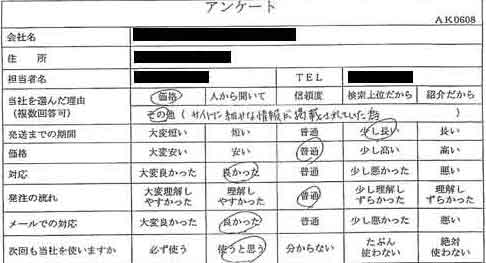 アンケート
AK0608
会社名
住 所
担当者名 TEL
当社を選んだ理由 価格 人から聞いて 信頼度 検索上位だから 紹介だから
(複数回答可) その他 ( サイトに細かな情報が掲載されていた為 )
発送までの期間 大変短い 短い 普通 少し長い 長い
価格 大変安い 安い 普通 少し高い 高い
対応 大変良かった 良かった 普通 少し悪かった 悪い
発注の流れ 大変理解し 理解し 普通 少し理解し 理解し
やすかった やすかった ずらかった ずらかった
メールでの対応 大変良かった 良かった 普通 少し悪かった 悪い
次回も当社を使いますか 必ず使う 使うと思う 分からない たぶん 絶対
使わない 使わない